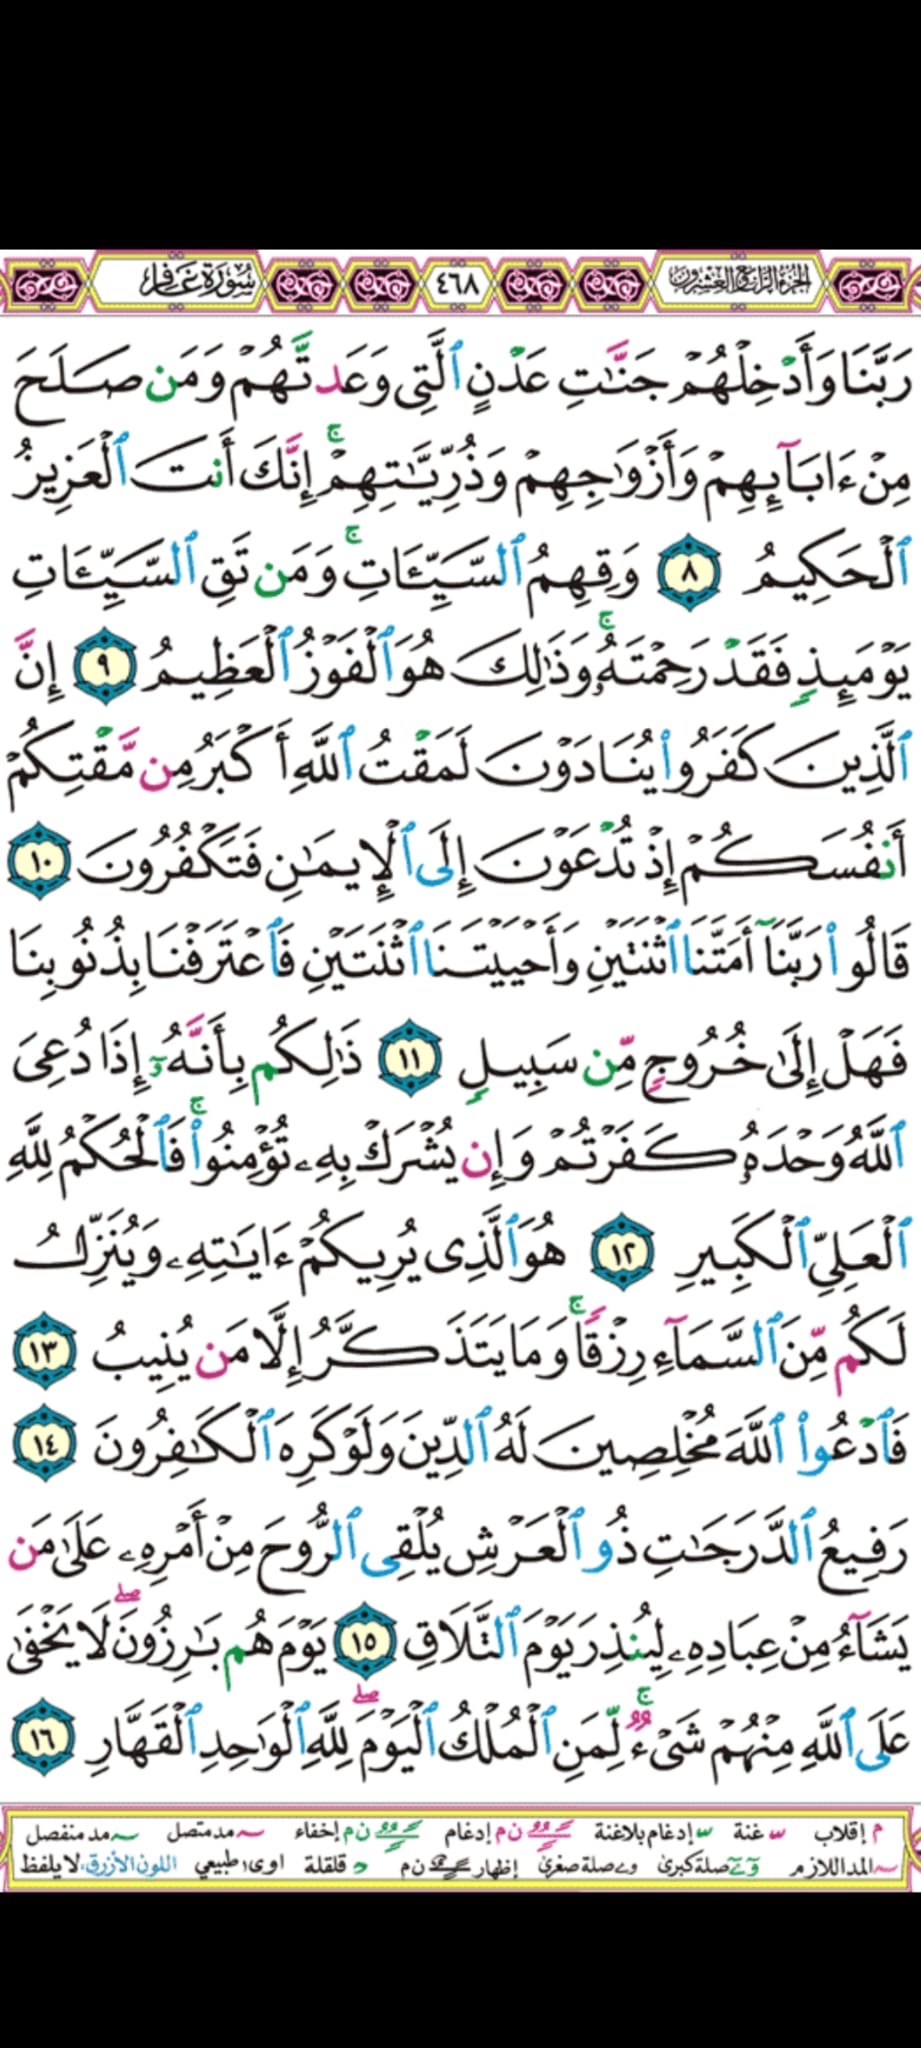 الجزء الرابع والعشرون ٤٦٨ سُورَةُ غَافِر
رَبَّنَا وَأَدْخِلْهُمْ جَنَّٰتِ عَدْنٍ ٱلَّتِى وَعَدتَّهُمْ وَمَن صَلَحَ
مِنْ ءَابَآئِهِمْ وَأَزْوَٰجِهِمْ وَذُرِّيَّٰتِهِمْ ۚ إِنَّكَ أَنتَ ٱلْعَزِيزُ
ٱلْحَكِيمُ ٨ وَقِهِمُ ٱلسَّيِّـَٔاتِ ۚ وَمَن تَقِ ٱلسَّيِّـَٔاتِ
يَوْمَئِذٍ فَقَدْ رَحِمْتَهُۥ ۚ وَذَٰلِكَ هُوَ ٱلْفَوْزُ ٱلْعَظِيمُ ٩ إِنَّ
ٱلَّذِينَ كَفَرُوا۟ يُنَادَوْنَ لَمَقْتُ ٱللَّهِ أَكْبَرُ مِن مَّقْتِكُمْ
أَنفُسَكُمْ إِذْ تُدْعَوْنَ إِلَى ٱلْإِيمَٰنِ فَتَكْفُرُونَ ١٠
قَالُوا۟ رَبَّنَآ أَمَتَّنَا ٱثْنَتَيْنِ وَأَحْيَيْتَنَا ٱثْنَتَيْنِ فَٱعْتَرَفْنَا بِذُنُوبِنَا
فَهَلْ إِلَىٰ خُرُوجٍ مِّن سَبِيلٍ ١١ ذَٰلِكُم بِأَنَّهُۥٓ إِذَا دُعِىَ
ٱللَّهُ وَحْدَهُۥ كَفَرْتُمْ وَإِن يُشْرَكْ بِهِۦ تُؤْمِنُوا۟ ۚ فَٱلْحُكْمُ لِلَّهِ
ٱلْعَلِىِّ ٱلْكَبِيرِ ١٢ هُوَ ٱلَّذِى يُرِيكُمْ ءَايَٰتِهِۦ وَيُنَزِّلُ
لَكُم مِّنَ ٱلسَّمَآءِ رِزْقًا ۚ وَمَا يَتَذَكَّرُ إِلَّا مَن يُنِيبُ ١٣
فَٱدْعُوا۟ ٱللَّهَ مُخْلِصِينَ لَهُ ٱلدِّينَ وَلَوْ كَرِهَ ٱلْكَٰفِرُونَ ١٤
رَفِيعُ ٱلدَّرَجَٰتِ ذُو ٱلْعَرْشِ يُلْقِى ٱلرُّوحَ مِنْ أَمْرِهِۦ عَلَىٰ مَن
يَشَآءُ مِنْ عِبَادِهِۦ لِيُنذِرَ يَوْمَ ٱلتَّلَاقِ ١٥ يَوْمَ هُم بَٰرِزُونَ ۖ لَا يَخْفَىٰ
عَلَى ٱللَّهِ مِنْهُمْ شَىْءٌ ۚ لِّمَنِ ٱلْمُلْكُ ٱلْيَوْمَ ۖ لِلَّهِ ٱلْوَٰحِدِ ٱلْقَهَّارِ ١٦
م إقلاب غنة إدغام بلاغنة ن م إدغام ن م إخفاء مد متصل مد منفصل
المد اللازم صلة كبرى صلة صغرى إظهار ن م قلقلة ا و ى طبيعي اللون الأزرق: لا يلفظ